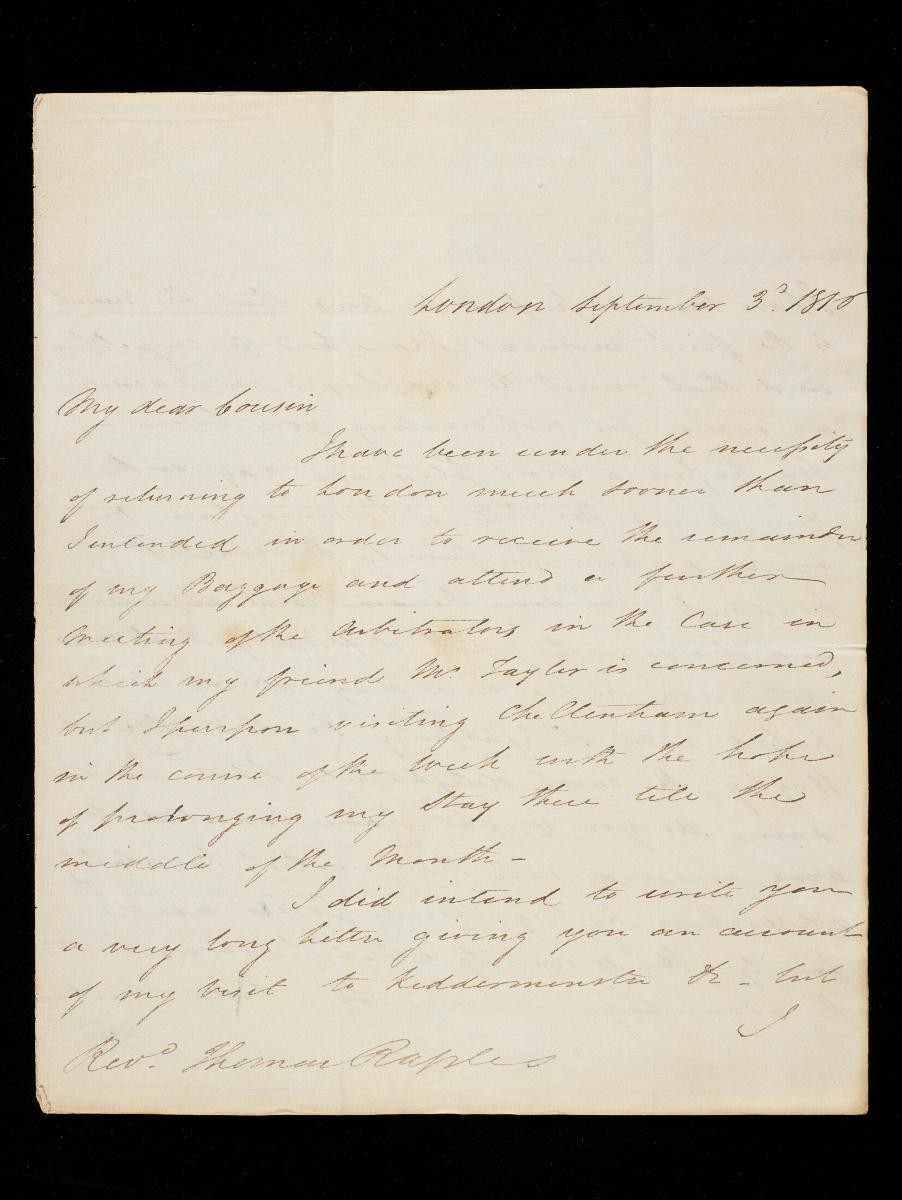 London September 3d. 1816
My dear Cousin
I have been under the necessity
of returning to London much sooner than
I intended in order to receive the remainder
of my Baggage and attend a further
Meeting of the Arbitrators in the Case in
which my friend Mr. Tayler is concerned,
but I purpose visiting Cheltenham again
in the course of the Week with the hope
of prolonging my Stay there till the
middle of the Month -
I did intend to write you
a very long letter giving you an account
of my visit to Kedderminster &c - but
I
Revd. Thomas Raffles